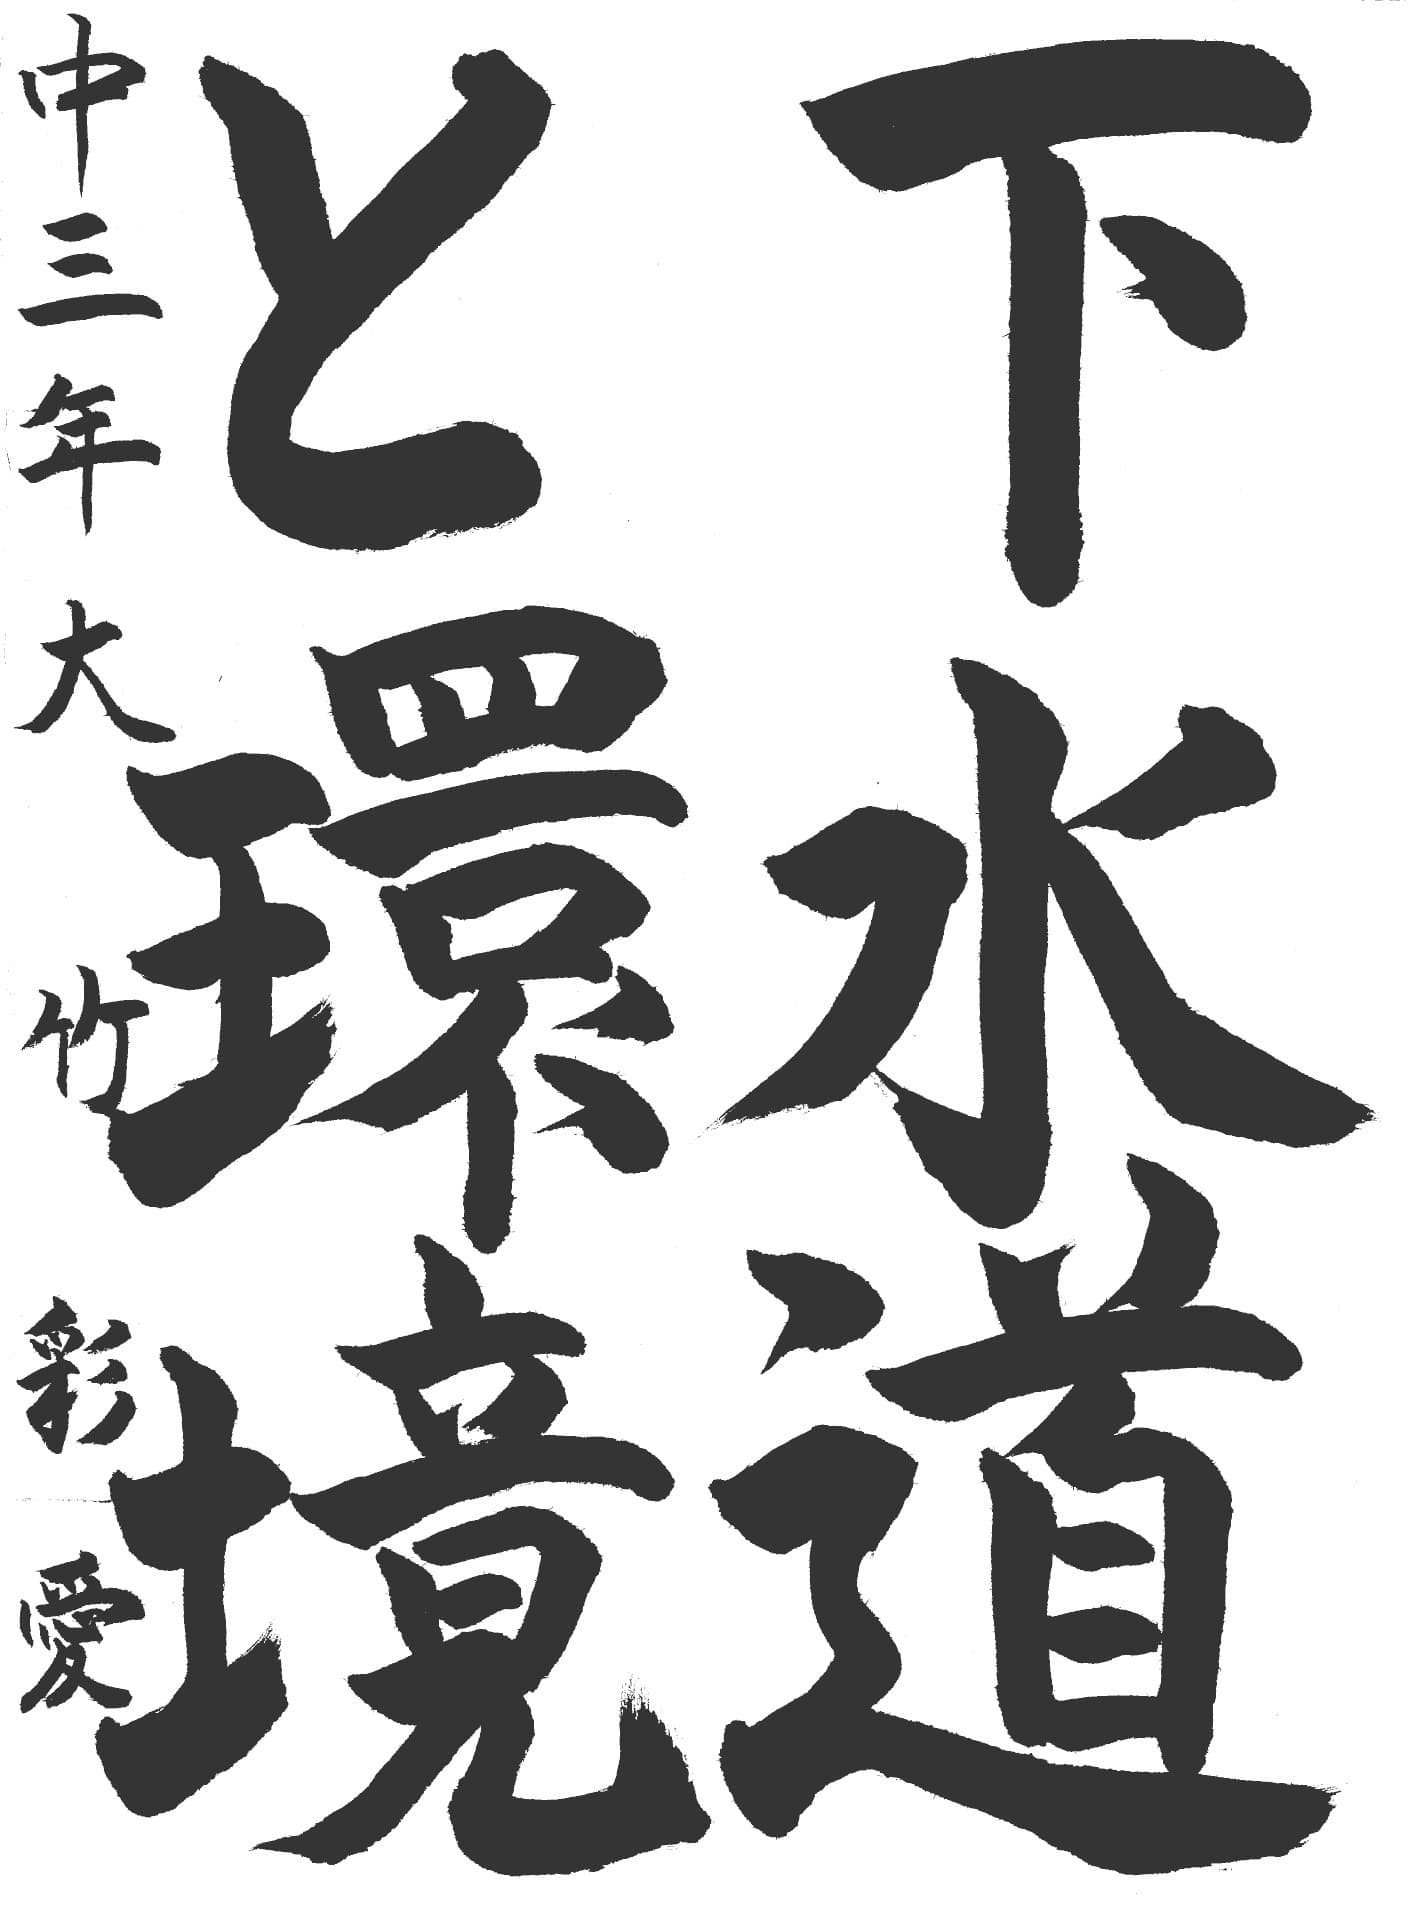 下水道
と環境
中三年 大竹彩愛